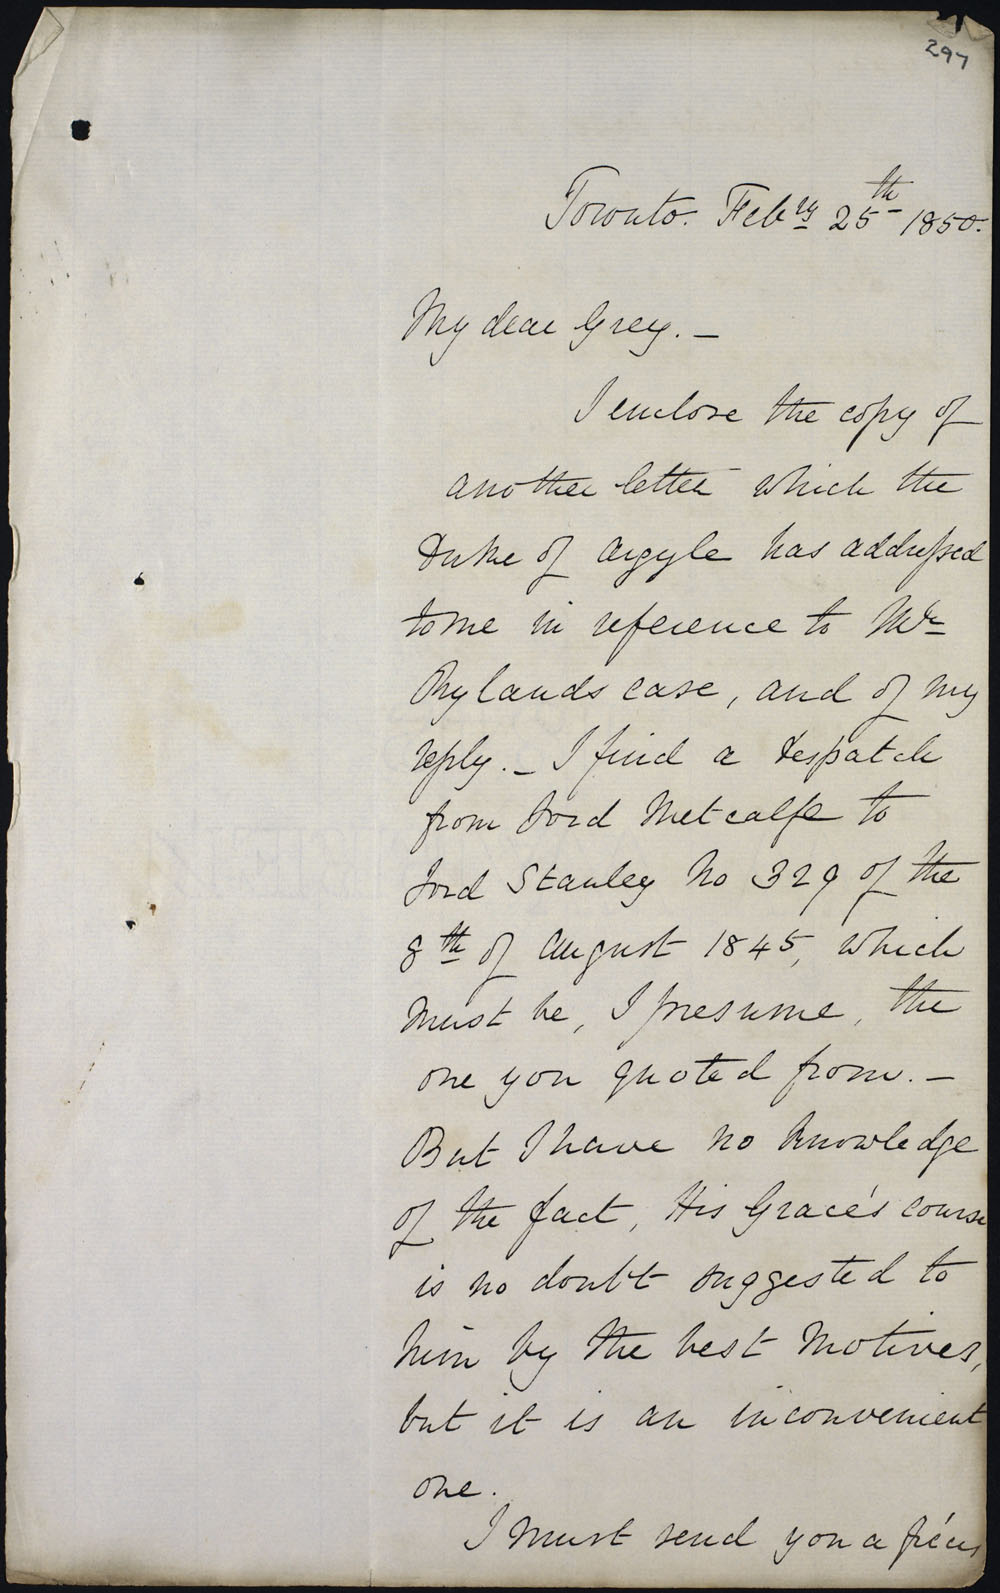 297
Toronto. Feby 25th 1850.
My dear Grey. –
I enclose the copy of
another letter which the
Duke of Argyle has addressed
to me in reference to Mr
Rylands case, and of my
reply. – I find a despatch
from Lord Metcalfe to
Lord Stanley No 329 of the
8th of August 1845, which
must be, I presume, the
one you quoted from. –
But I have no knowledge
of the fact, His Grace's course
is no doubt suggested to
him by the best motives,
but it is an inconvenient
one.
I must send you a